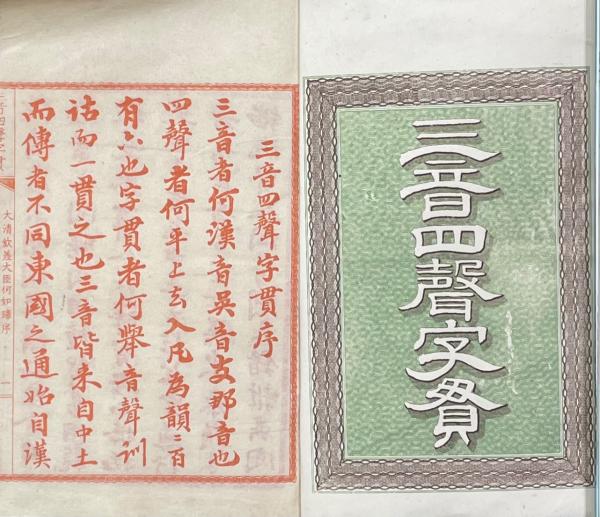 三音四聲字貫
三音四聲字貫序
三音者何漢音吳音支那音也
四聲者何平上去入凡為韻二百
有六也字貫者何舉音聲訓
詁而一貫之也三音皆来自中土
而傳者不同東國之通始自漢
三音四聲字貫
大清欽差大臣何如璋序
一